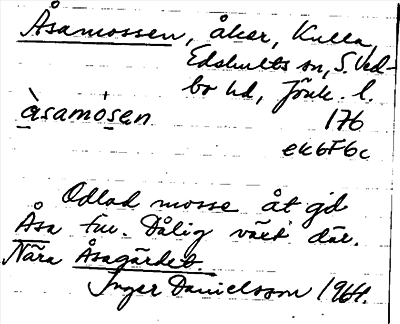 Åsamossen, åker, Kulla,
Edshults sn, S. Ved-
bo hd, Jönk. l.
àsamosen 176
ek6F6c
Odlad mosse åt gd
Åsa fur. Dålig växt där.
Nära Åsagärdet.
Inger Danielsson 1964.